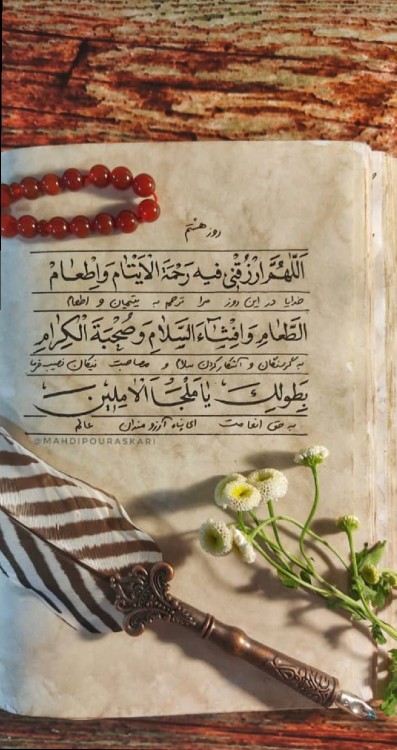 روز هشتم
اَللّٰهُمَّ ارْزُقْنی فیهِ رَحْمَةَ الْاَیْتٰامِ وَاِطْعٰامَ
خدایا در این روز مرا ترحم به یتیمان و اطعام
الطَّعٰامِ وَاِفْشٰاءَ السَّلاٰمِ وَصُحْبَةَ الْکِرٰامِ
به گرسنگان و آشکار کردن سلام و مصاحبت نیکان نصیب فرما
بِطَولِكَ یٰا مَلْجَاَ الْاٰمِلینَ
به حق انعامت ای پناه آرزومندان عالم
@MAHDIPOURASKARI